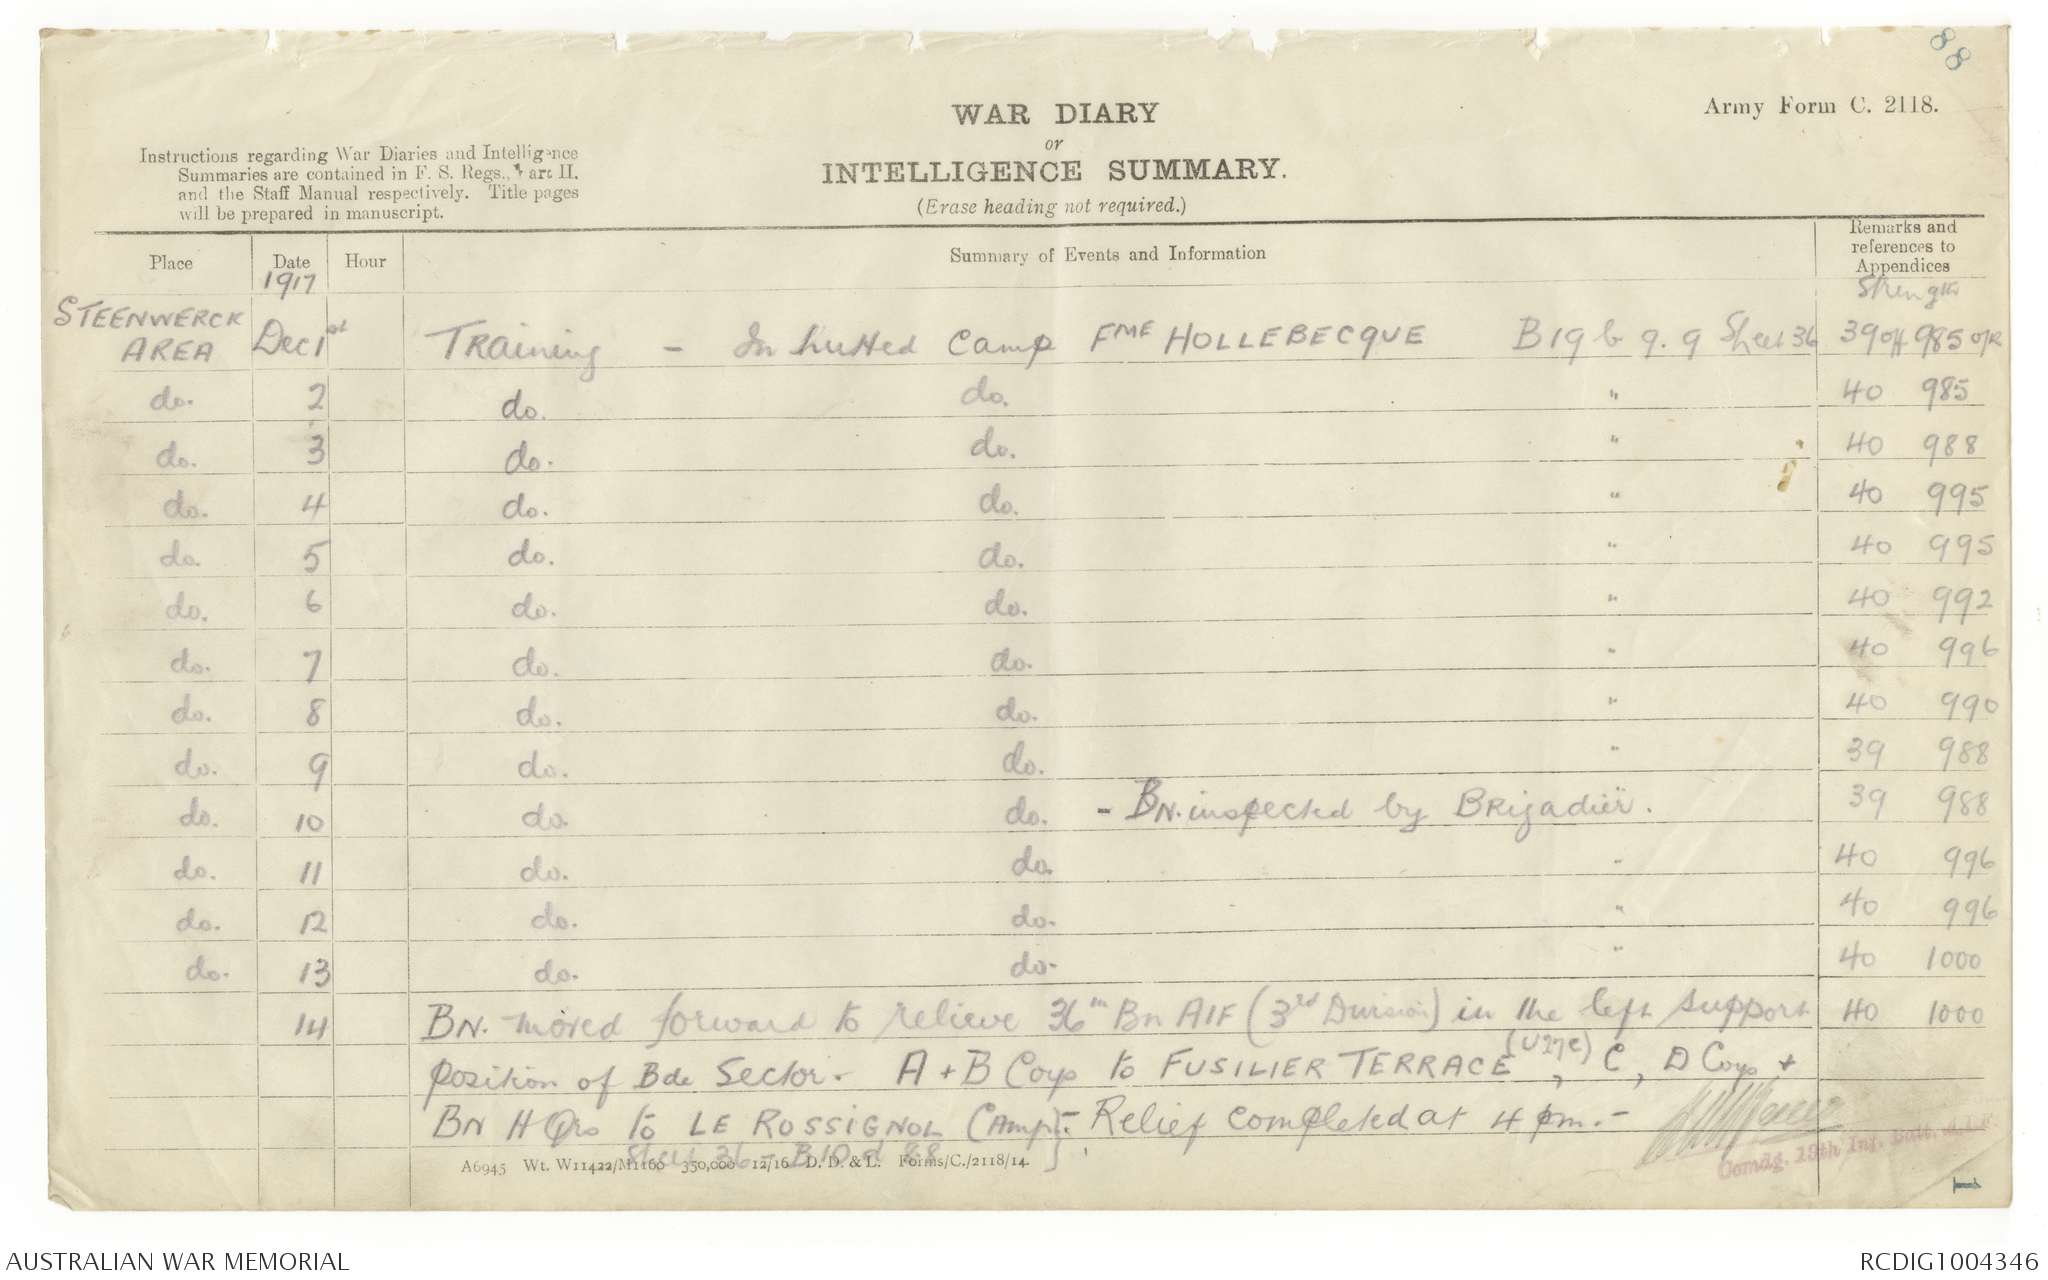 88
Army Form C. 2118.
WAR DIARY
or
INTELLIGENCE SUMMARY.
(Erase heading not required.)
Instructions regarding War Diaries and Intelligence
Summaries are contained in F. S. Regs., Part II.
and the Staff Manual respectively. Title pages
will be prepared in manuscript.
Place Date Hour Summary of Events and Information Remarks and references to Appendices
1917 Strength
STEENWERCK AREA Dec 1st Training - In hutted Camp FME HOLLEBECQUE B19 b 9.9 Sheet 36 39 off 985 o/R
do. 2 do. do. " 40 985
do. 3 do. do. " 40 988
do. 4 do. do. " 40 995
do. 5 do. do. " 40 995
do. 6 do. do. " 40 992
do. 7 do. do. " 40 996
do. 8 do. do. " 40 990
do. 9 do. do. " 39 988
do. 10 do. do. - BN. inspected by BRigadier. 39 988
do. 11 do. do. " 40 996
do. 12 do. do. " 40 996
do. 13 do. do. " 40 1000
14 BN. moved forward to relieve 36th Bn AIF (3rd Division) in the left support 40 1000
position of Bde Sector. A + B Coys to FUSILIER TERRACE (U27c), C, D Coys +
BN H Qrs to LE ROSSIGNOL CAmp - Relief completed at 4 pm. -
Sheet 36 - B10 d 88
A6945 Wt. W11422/M1160 350,000 12/16 D. D. & L. Forms/C./2118/14
Comdg. 19th Inf. Batt. A.I.F.
1
AUSTRALIAN WAR MEMORIAL
RCDIG1004346